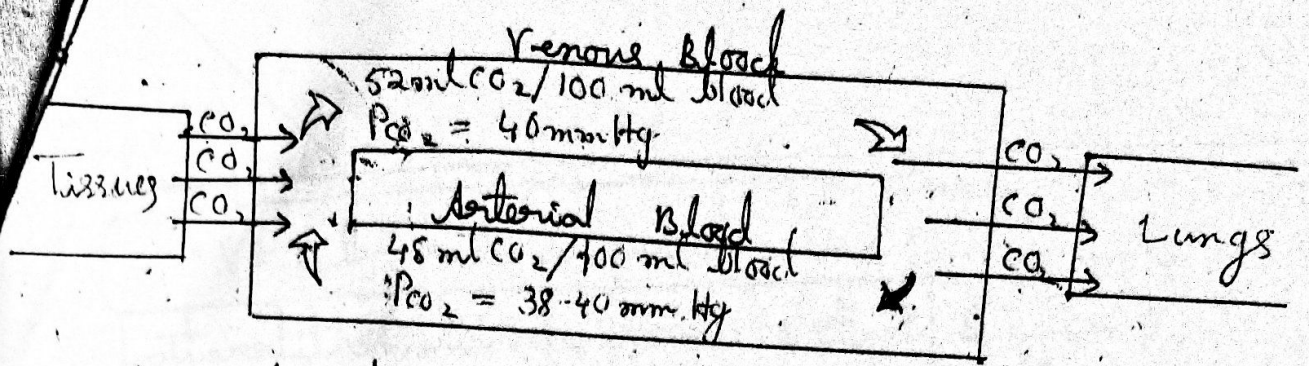 Venous Blood
52 ml CO2/100 ml blood
PCO2 = 40 mm Hg
CO2
CO2
CO2
Tissues
Arterial Blood
48 ml CO2/100 ml blood
PCO2 = 38-40 mm Hg
CO2
CO2
CO2
Lungs